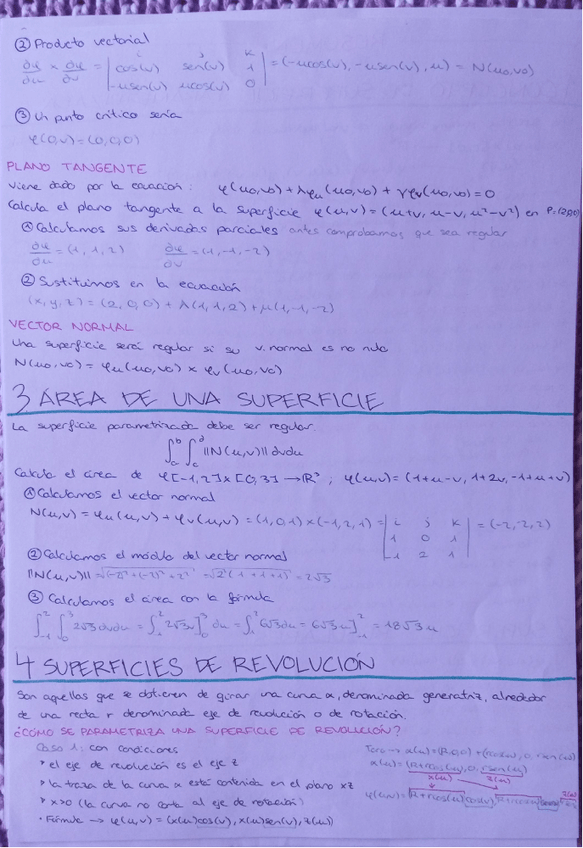 ② Producto vectorial
∂φ/∂u × ∂φ/∂v = | i j k ; cos(v) sen(v) 1 ; -usen(v) ucos(v) 0 | = (-ucos(v), -usen(v), u) = N(u0,v0)
③ Un punto crítico sería
φ(0,v)=(0,0,0)
PLANO TANGENTE
Viene dado por la ecuación: φ(u0,v0)+λφu(u0,v0)+γφv(u0,v0)=0
Calcula el plano tangente a la superficie φ(u,v)=(u+v, u-v, u²-v²) en P=(2,0,0)
① Calculamos sus derivadas parciales antes comprobamos que sea regular
∂φ/∂u=(1,1,2) ∂φ/∂v=(1,-1,-2)
② Sustituimos en la ecuación
(x,y,z)=(2,0,0)+λ(1,1,2)+μ(1,-1,-2)
VECTOR NORMAL
Una superficie será regular si su v.normal es no nulo
N(u0,v0)=φu(u0,v0)×φv(u0,v0)
3 ÁREA DE UNA SUPERFICIE
La superficie parametrizada debe ser regular.
∫∫||N(u,v)||dvdu
Calcula el área de φ[-1,2]x[0,3]→R³; φ(u,v)=(1+u-v, 1+2v, -1+u+v)
① Calculamos el vector normal
N(u,v)=φu(u,v)+φv(u,v)=(1,0,1)×(-1,2,1)=| i j k ; 1 0 1 ; -1 2 1 |=(-2,-2,2)
② Calculamos el módulo del vector normal
||N(u,v)||=√(-2)²+(-2)²+2²=√2²(1+1+1)=2√3
③ Calculamos el área con la fórmula
∫₋₁²∫₀³2√3dvdu=∫₋₁²2√3v]₀³du=∫₋₁²6√3du=6√3u]₋₁²=18√3u
4 SUPERFICIES DE REVOLUCIÓN
Son aquellas que se obtienen de girar una curva α, denominada generatriz, alrededor
de una recta r denominada eje de revolución o de rotación.
¿CÓMO SE PARAMETRIZA UNA SUPERFICIE DE REVOLUCIÓN?
Caso 1: con condiciones
• el eje de revolución es el eje z
• la traza de la curva α está contenida en el plano xz
• x>0 (la curva no corta al eje de rotación)
• Fórmula → φ(u,v)=(x(u)cos(v), x(u)sen(v), z(u))
Toro → α(u)=(R,0,0)+(rcos(u),0,rsen(u))
α(u)=(R+rcos(u),0,rsen(u))
x(u) z(u)